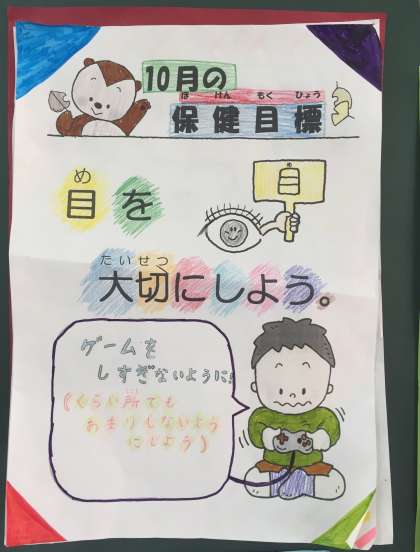 10月の
保健目標
ほけんもくひょう
目を
め
目
め
大切にしよう。
たいせつ
ゲームを
しすぎないように!
(くらい所でも
あまりしないよう
にしよう)